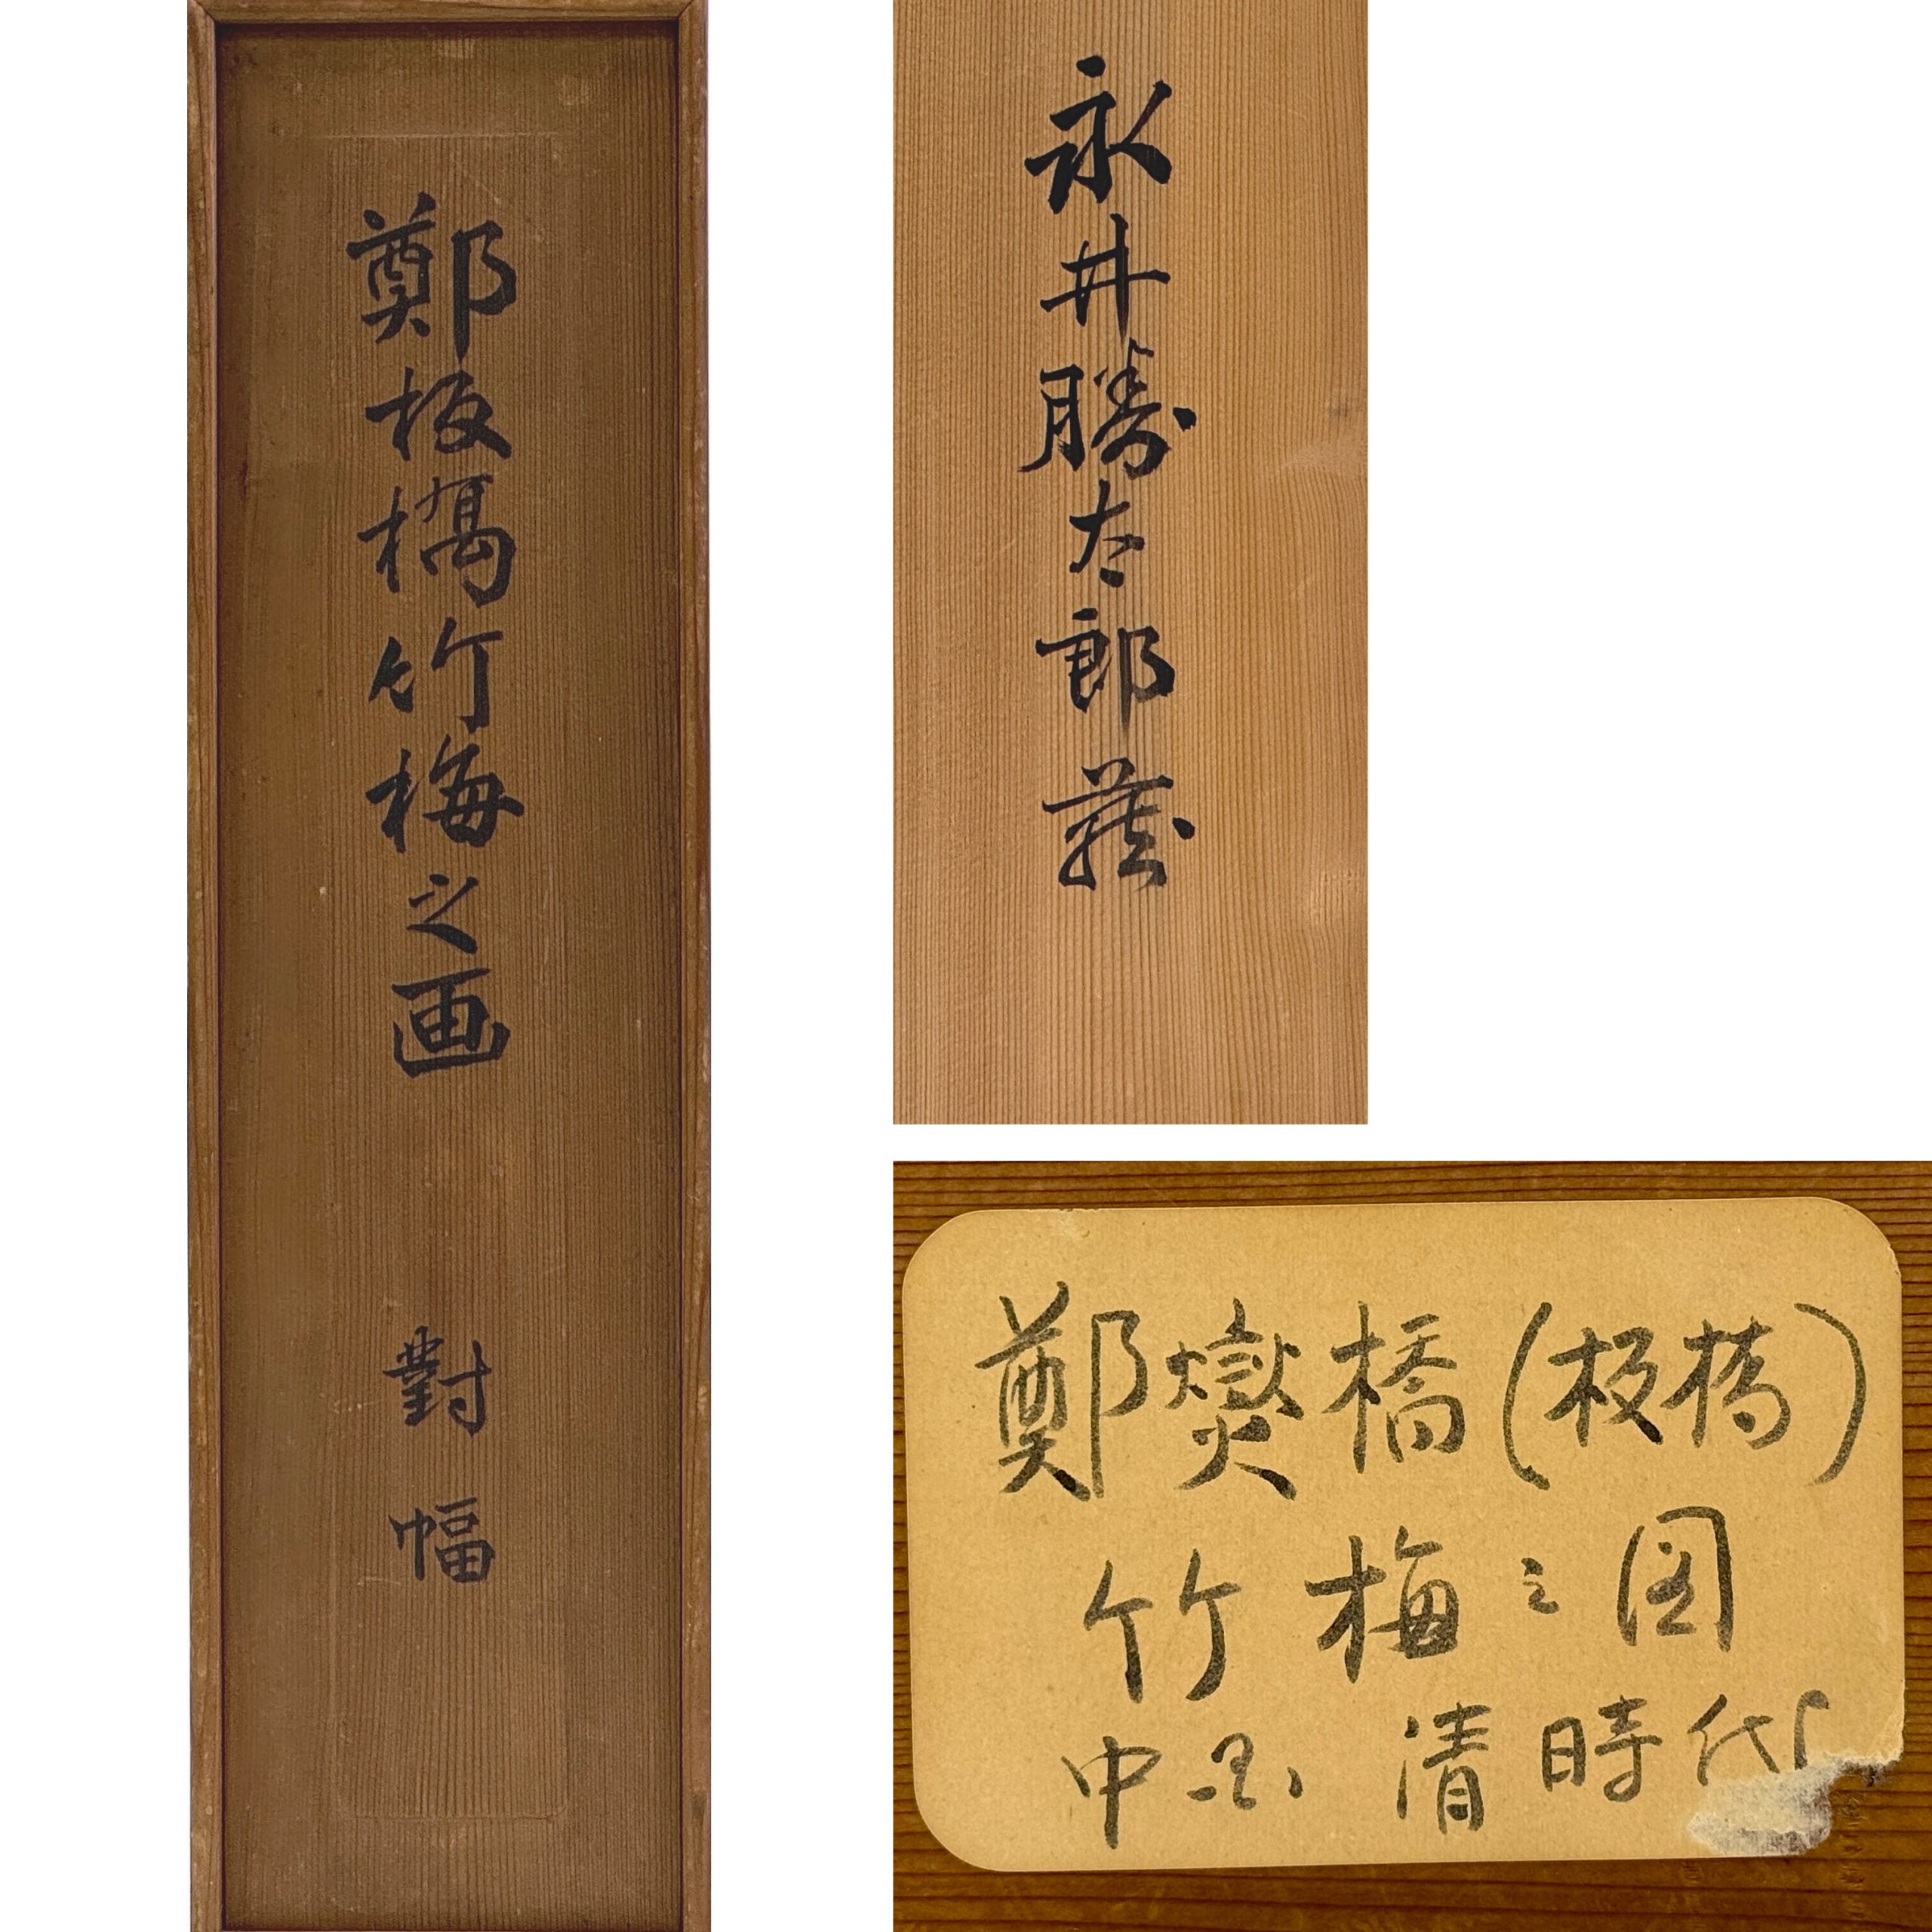 鄭板橋竹梅之画 對幅
永井勝太郎蔵
鄭燮橋(板橋)
竹梅之図
中国 清時代